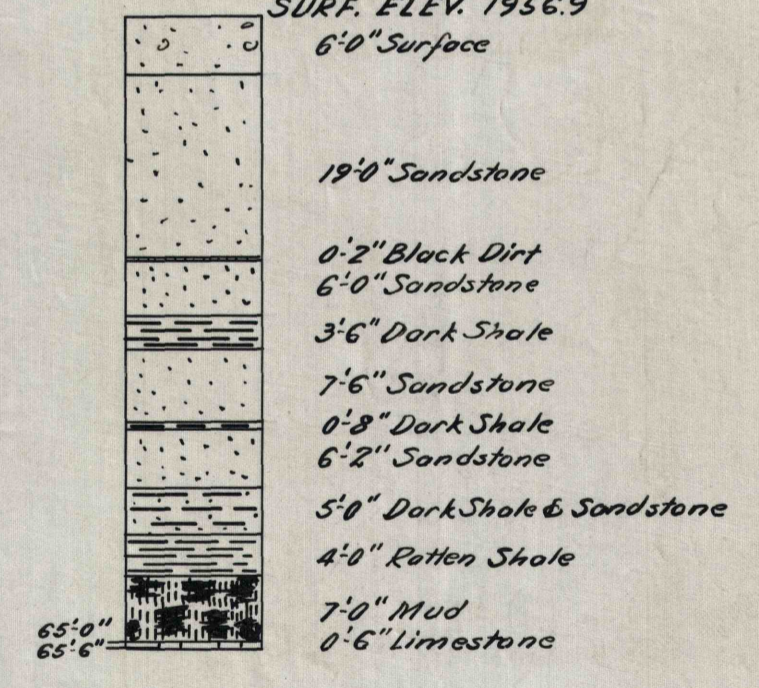 SURF. ELEV. 1956.9
6'-0" Surface
19'-0" Sandstone
0'-2" Black Dirt
6'-0" Sandstone
3'-6" Dark Shale
7'-6" Sandstone
0'-8" Dark Shale
6'-2" Sandstone
5'-0" Dark Shale & Sandstone
4'-0" Ratten Shale
7'-0" Mud
65'-0"
0'-6" Limestone
65'-6"